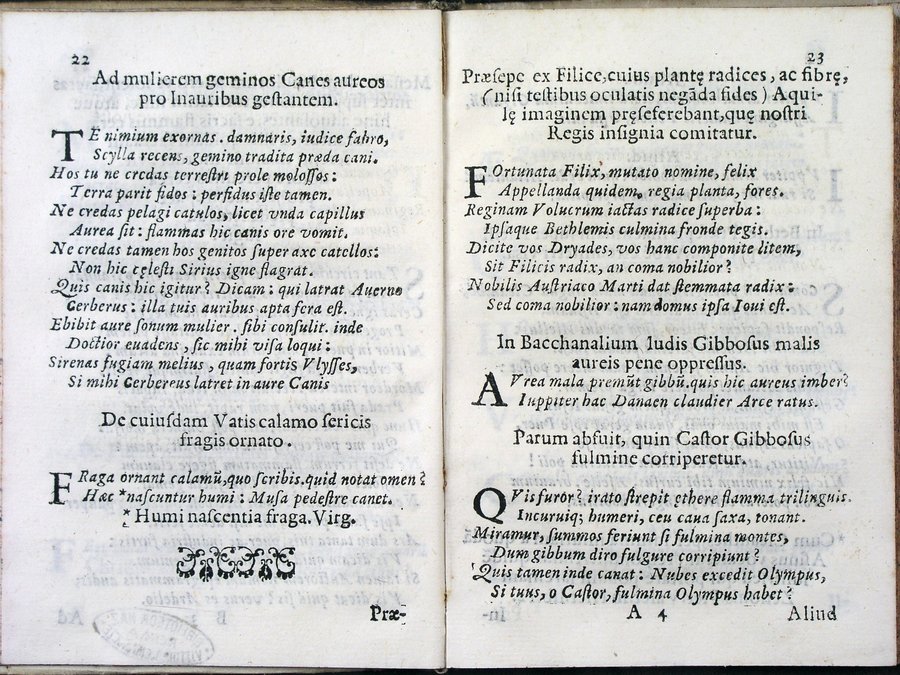 22
Ad mulierem geminos Canes aureos
pro Inauribus gestantem.
TE nimium exornas. damnaris, iudice fabro,
Scylla recens, gemino tradita præda cani.
Hos tu ne credas terrestri prole molossos:
Terra parit fidos: perfidus iste tamen.
Ne credas pelagi catulos, licet vnda capillus
Aurea sit: flammas hic canis ore vomit.
Ne credas tamen hos genitos super axe catellos:
Non hic cęlesti Sirius igne flagrat.
Quis canis hic igitur? Dicam: qui latrat Auerno
Cerberus: illa tuis auribus apta fera est.
Ebibit aure sonum mulier. sibi consulit. inde
Doctior euadens, sic mihi visa loqui:
Sirenas fugiam melius, quam fortis Vlysses,
Si mihi Cerbereus latret in aure Canis
De cuiusdam Vatis calamo sericis
fragis ornato.
FRaga ornant calamũ, quo scribis. quid notat omen?
Hæc *nascuntur humi: Musa pedestre canet.
* Humi nascentia fraga. Virg.
Præ-
23
Præsepe ex Filice, cuius plantę radices, ac fibrę,
(nisi testibus oculatis negãda fides) Aqui-
lę imaginem pręseferebant, quę nostri
Regis insignia comitatur.
FOrtunata Filix, mutato nomine, felix
Appellanda quidem, regia planta, fores.
Reginam Volucrum iactas radice superba:
Ipsaque Bethlemis culmina fronde tegis.
Dicite vos Dryades, vos hanc componite litem,
Sit Filicis radix, an coma nobilior?
Nobilis Austriaco Marti dat stemmata radix:
Sed coma nobilior: nam domus ipsa Ioui est.
In Bacchanalium ludis Gibbosus malis
aureis pene oppressus.
AVrea mala premũt gibbũ. quis hic aureus imber?
Iuppiter hac Danaen claudier Arce ratus.
Parum abfuit, quin Castor Gibbosus
fulmine corriperetur.
QVis furor? irato strepit ęthere flamma trilinguis.
Incuruiq; humeri, ceu caua saxa, tonant.
Miramur, summos feriunt si fulmina montes,
Dum gibbum diro fulgure corripiunt?
Quis tamen inde canat: Nubes excedit Olympus,
Si tuus, o Castor, fulmina Olympus habet?
A 4
Aliud